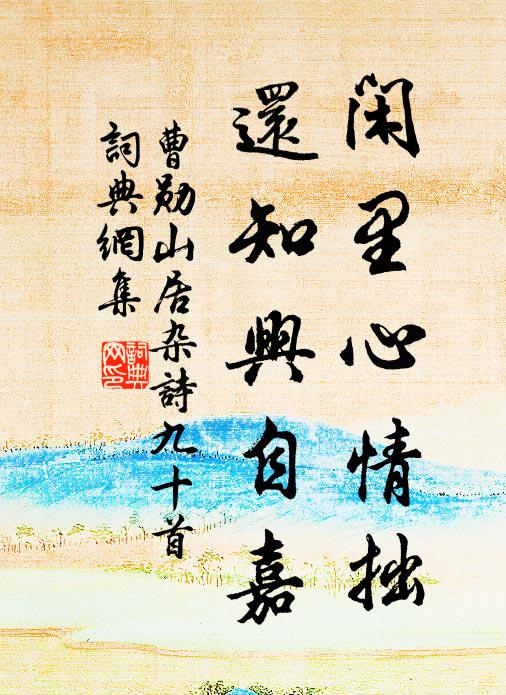 闲里心情拙
還知興自嘉
曹勋山居杂詩九十首
詞典網集
詞典
网印